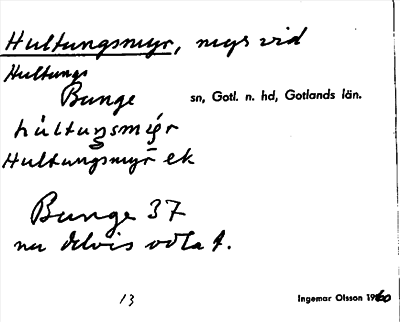 Hultungsmyr, myr vid
Hultungs
Bunge sn, Gotl. n. hd, Gotlands län.
hùltuŋsmýr
Hultungsmyr ek
Bunge 37
nu delvis odlat.
13 Ingemar Olsson 1960